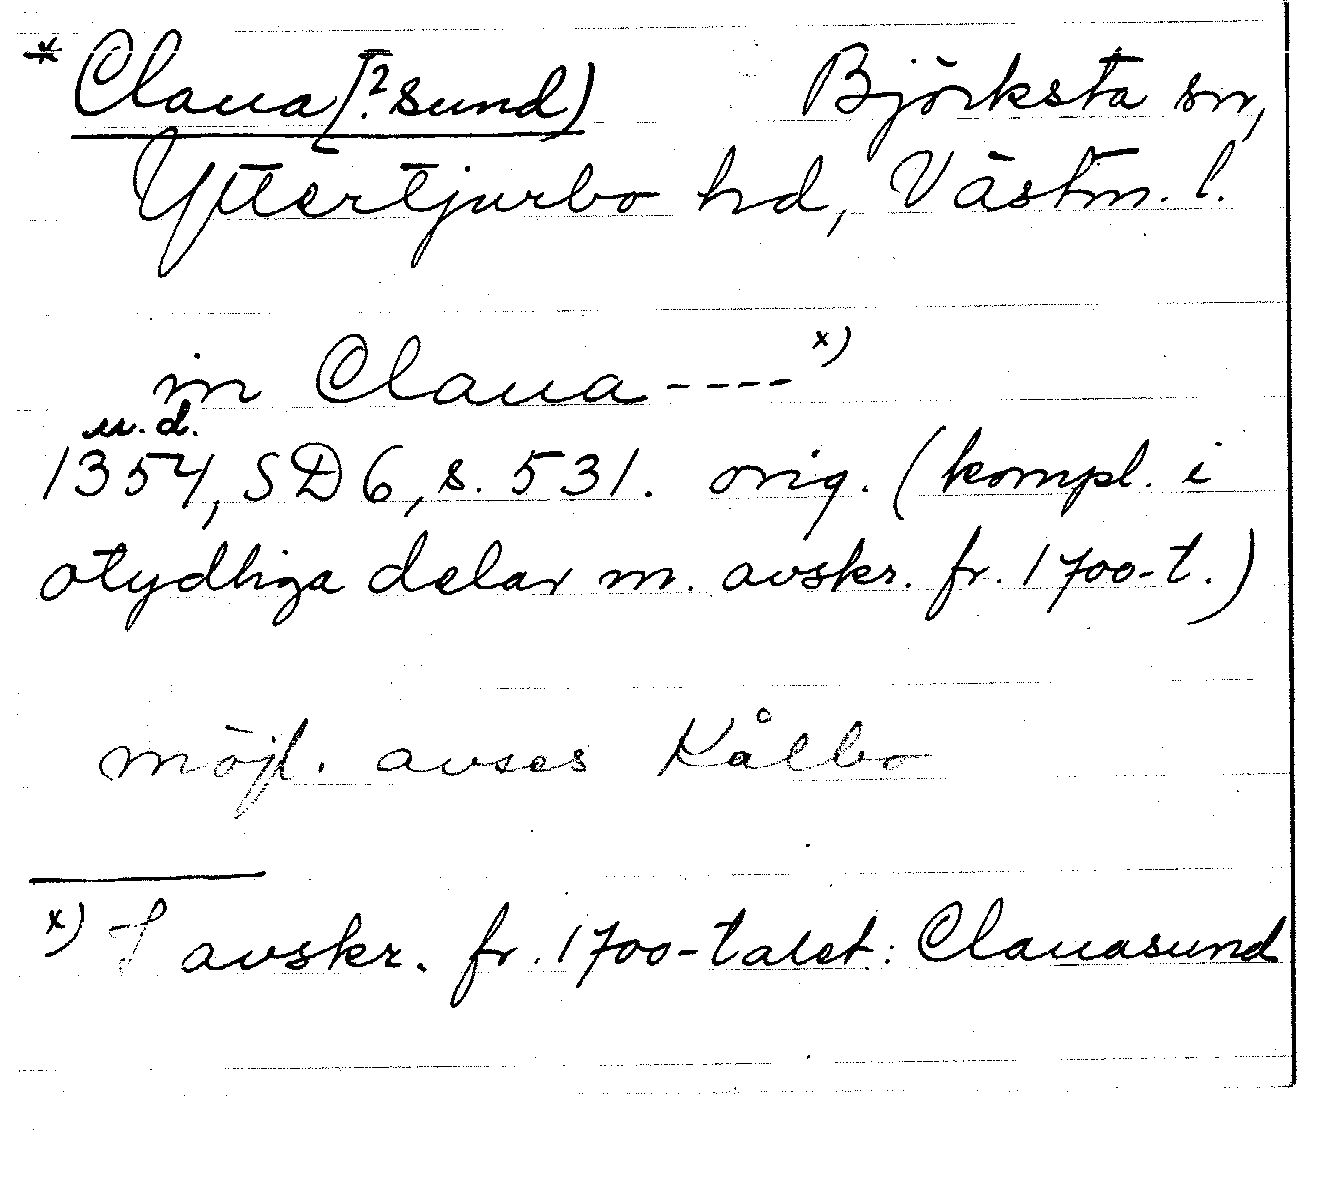 * Claua[?sund) Björksta sn,
Yttertjurbo hd, Västm. l.
in Claua----x)
u.d.
1354, SD 6, s. 531. orig. (kompl. i
otydliga delar m. avskr. fr. 1700-t.)
möjl. avses Kålbo
x) I avskr. fr. 1700-talet: Clauasund